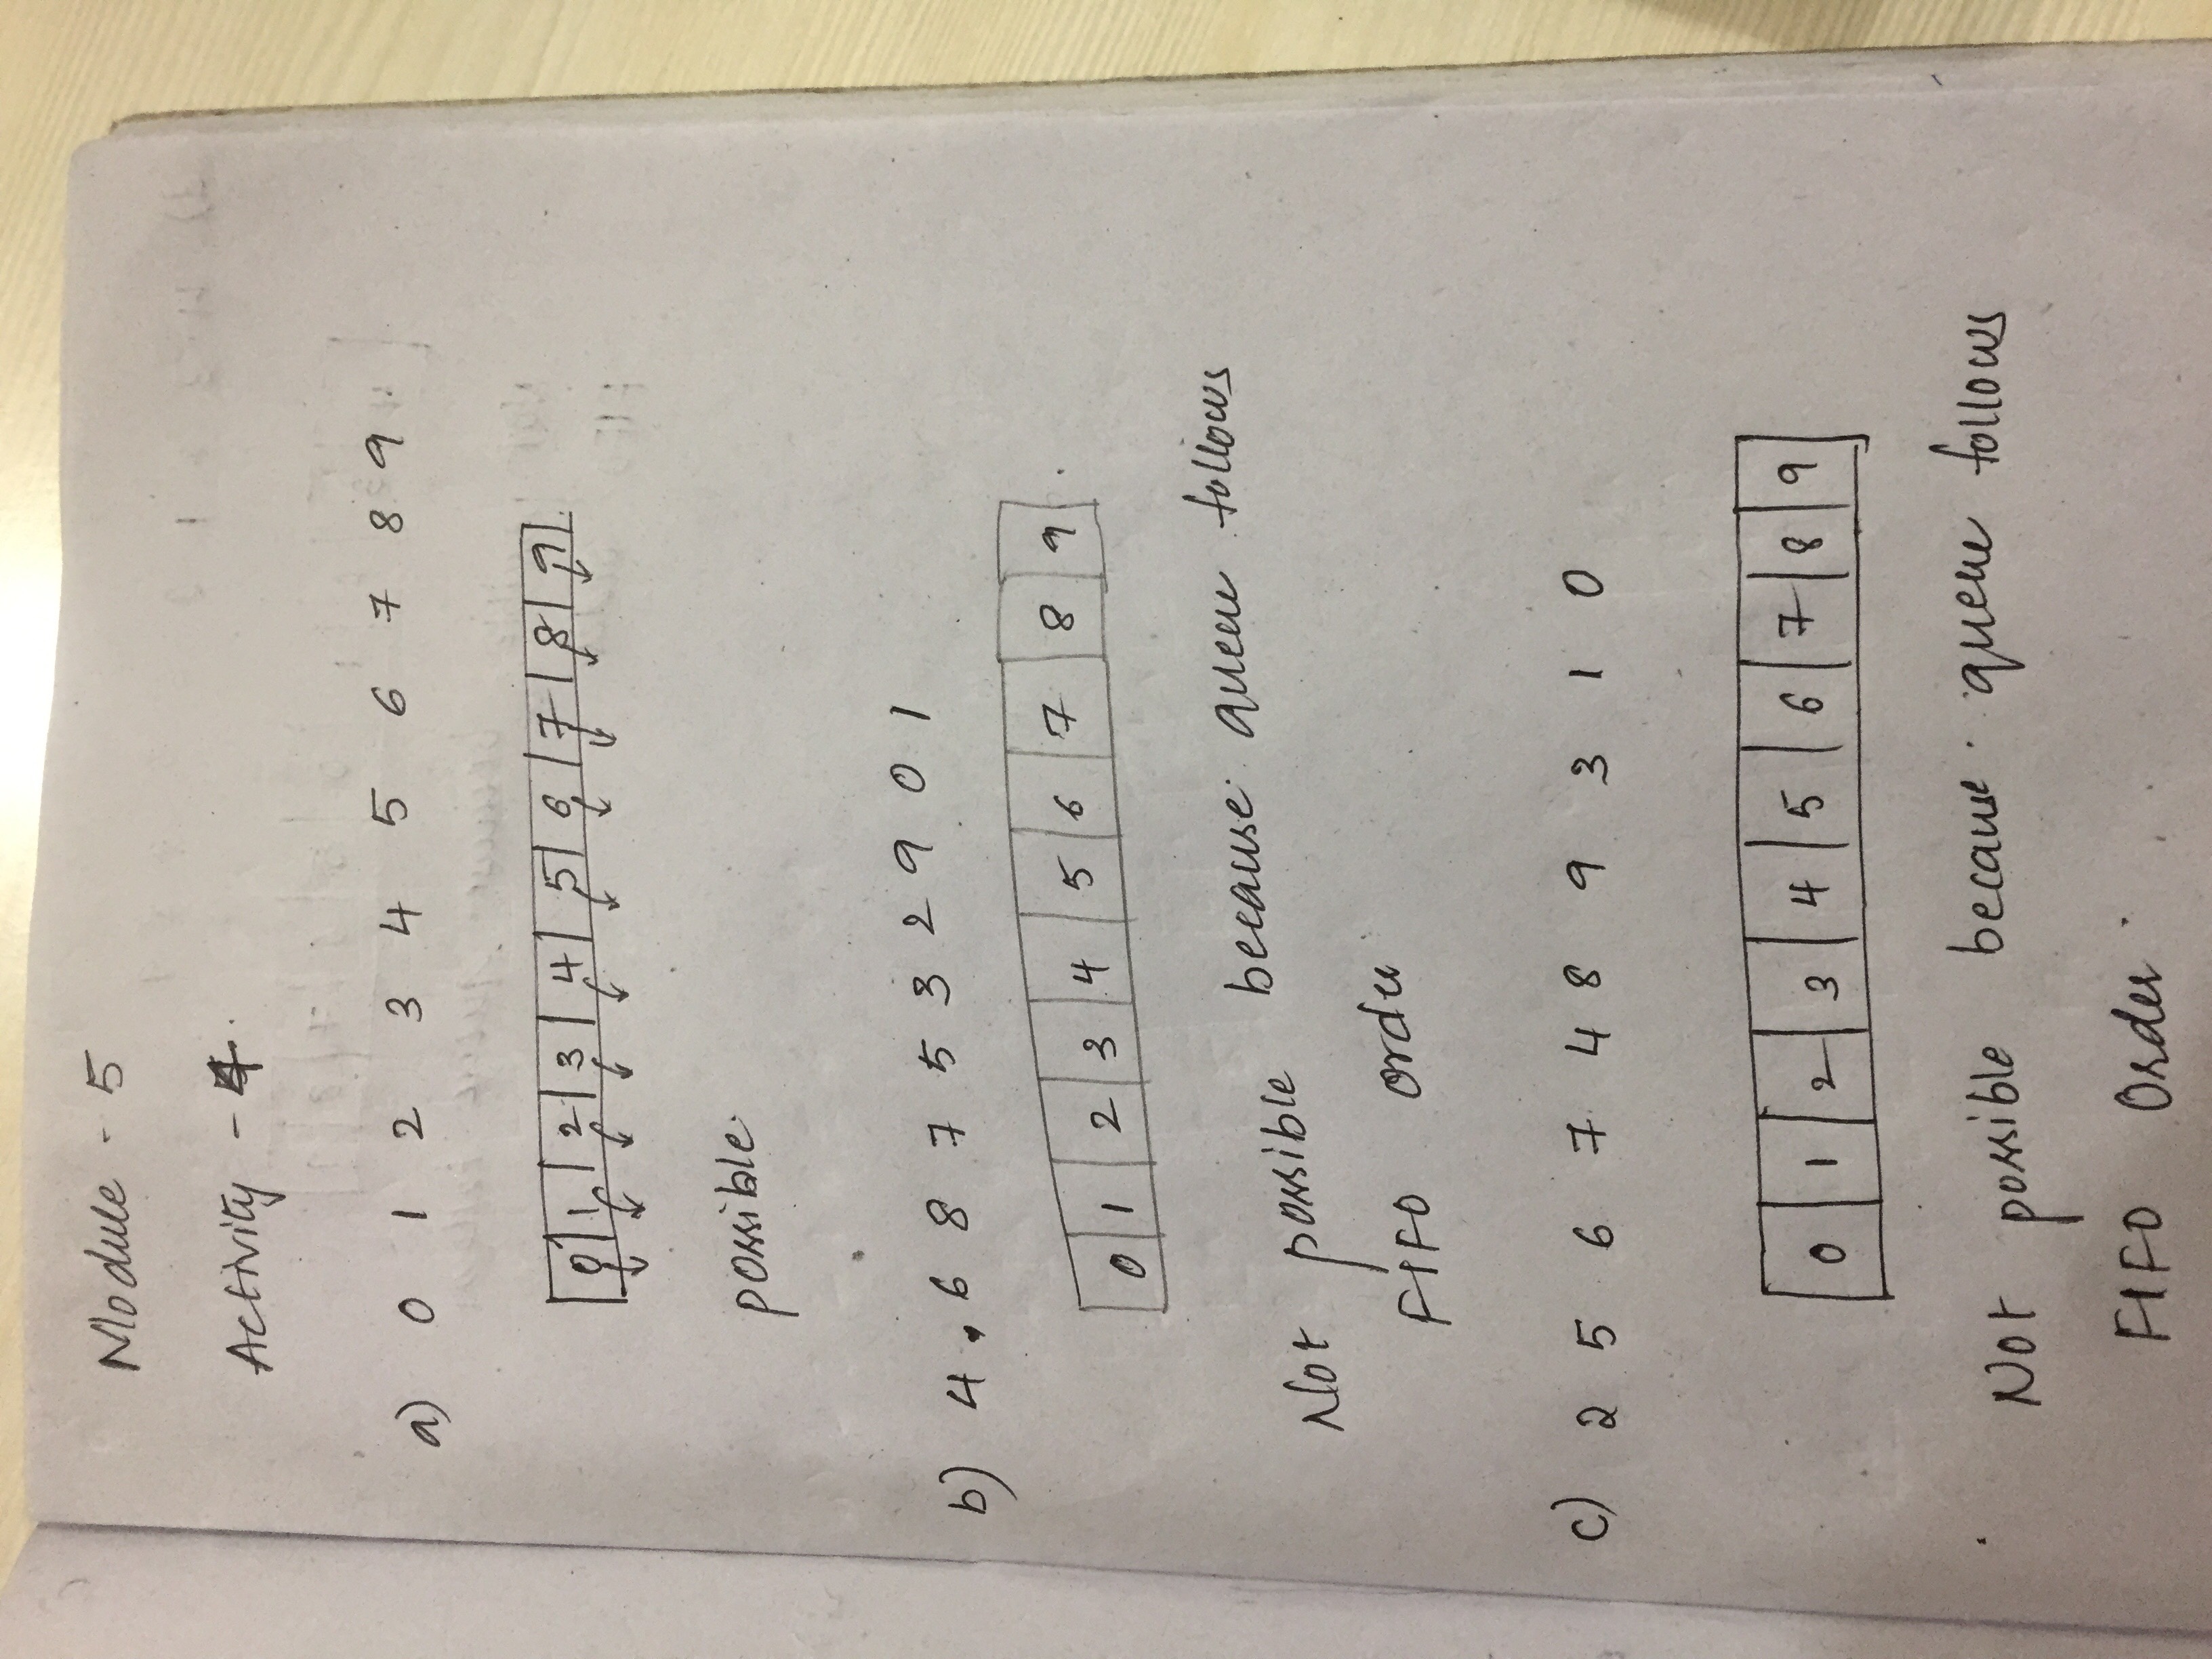 Module - 5
Activity - 4.
a) 0 1 2 3 4 5 6 7 8 9
0 1 2 3 4 5 6 7 8 9
possible.
b) 4 6 8 7 5 3 2 9 0 1
0 1 2 3 4 5 6 7 8 9
Not possible because queue follows
FIFO order
c) 2 5 6 7 4 8 9 3 1 0
0 1 2 3 4 5 6 7 8 9
Not possible because queue follows
FIFO Order